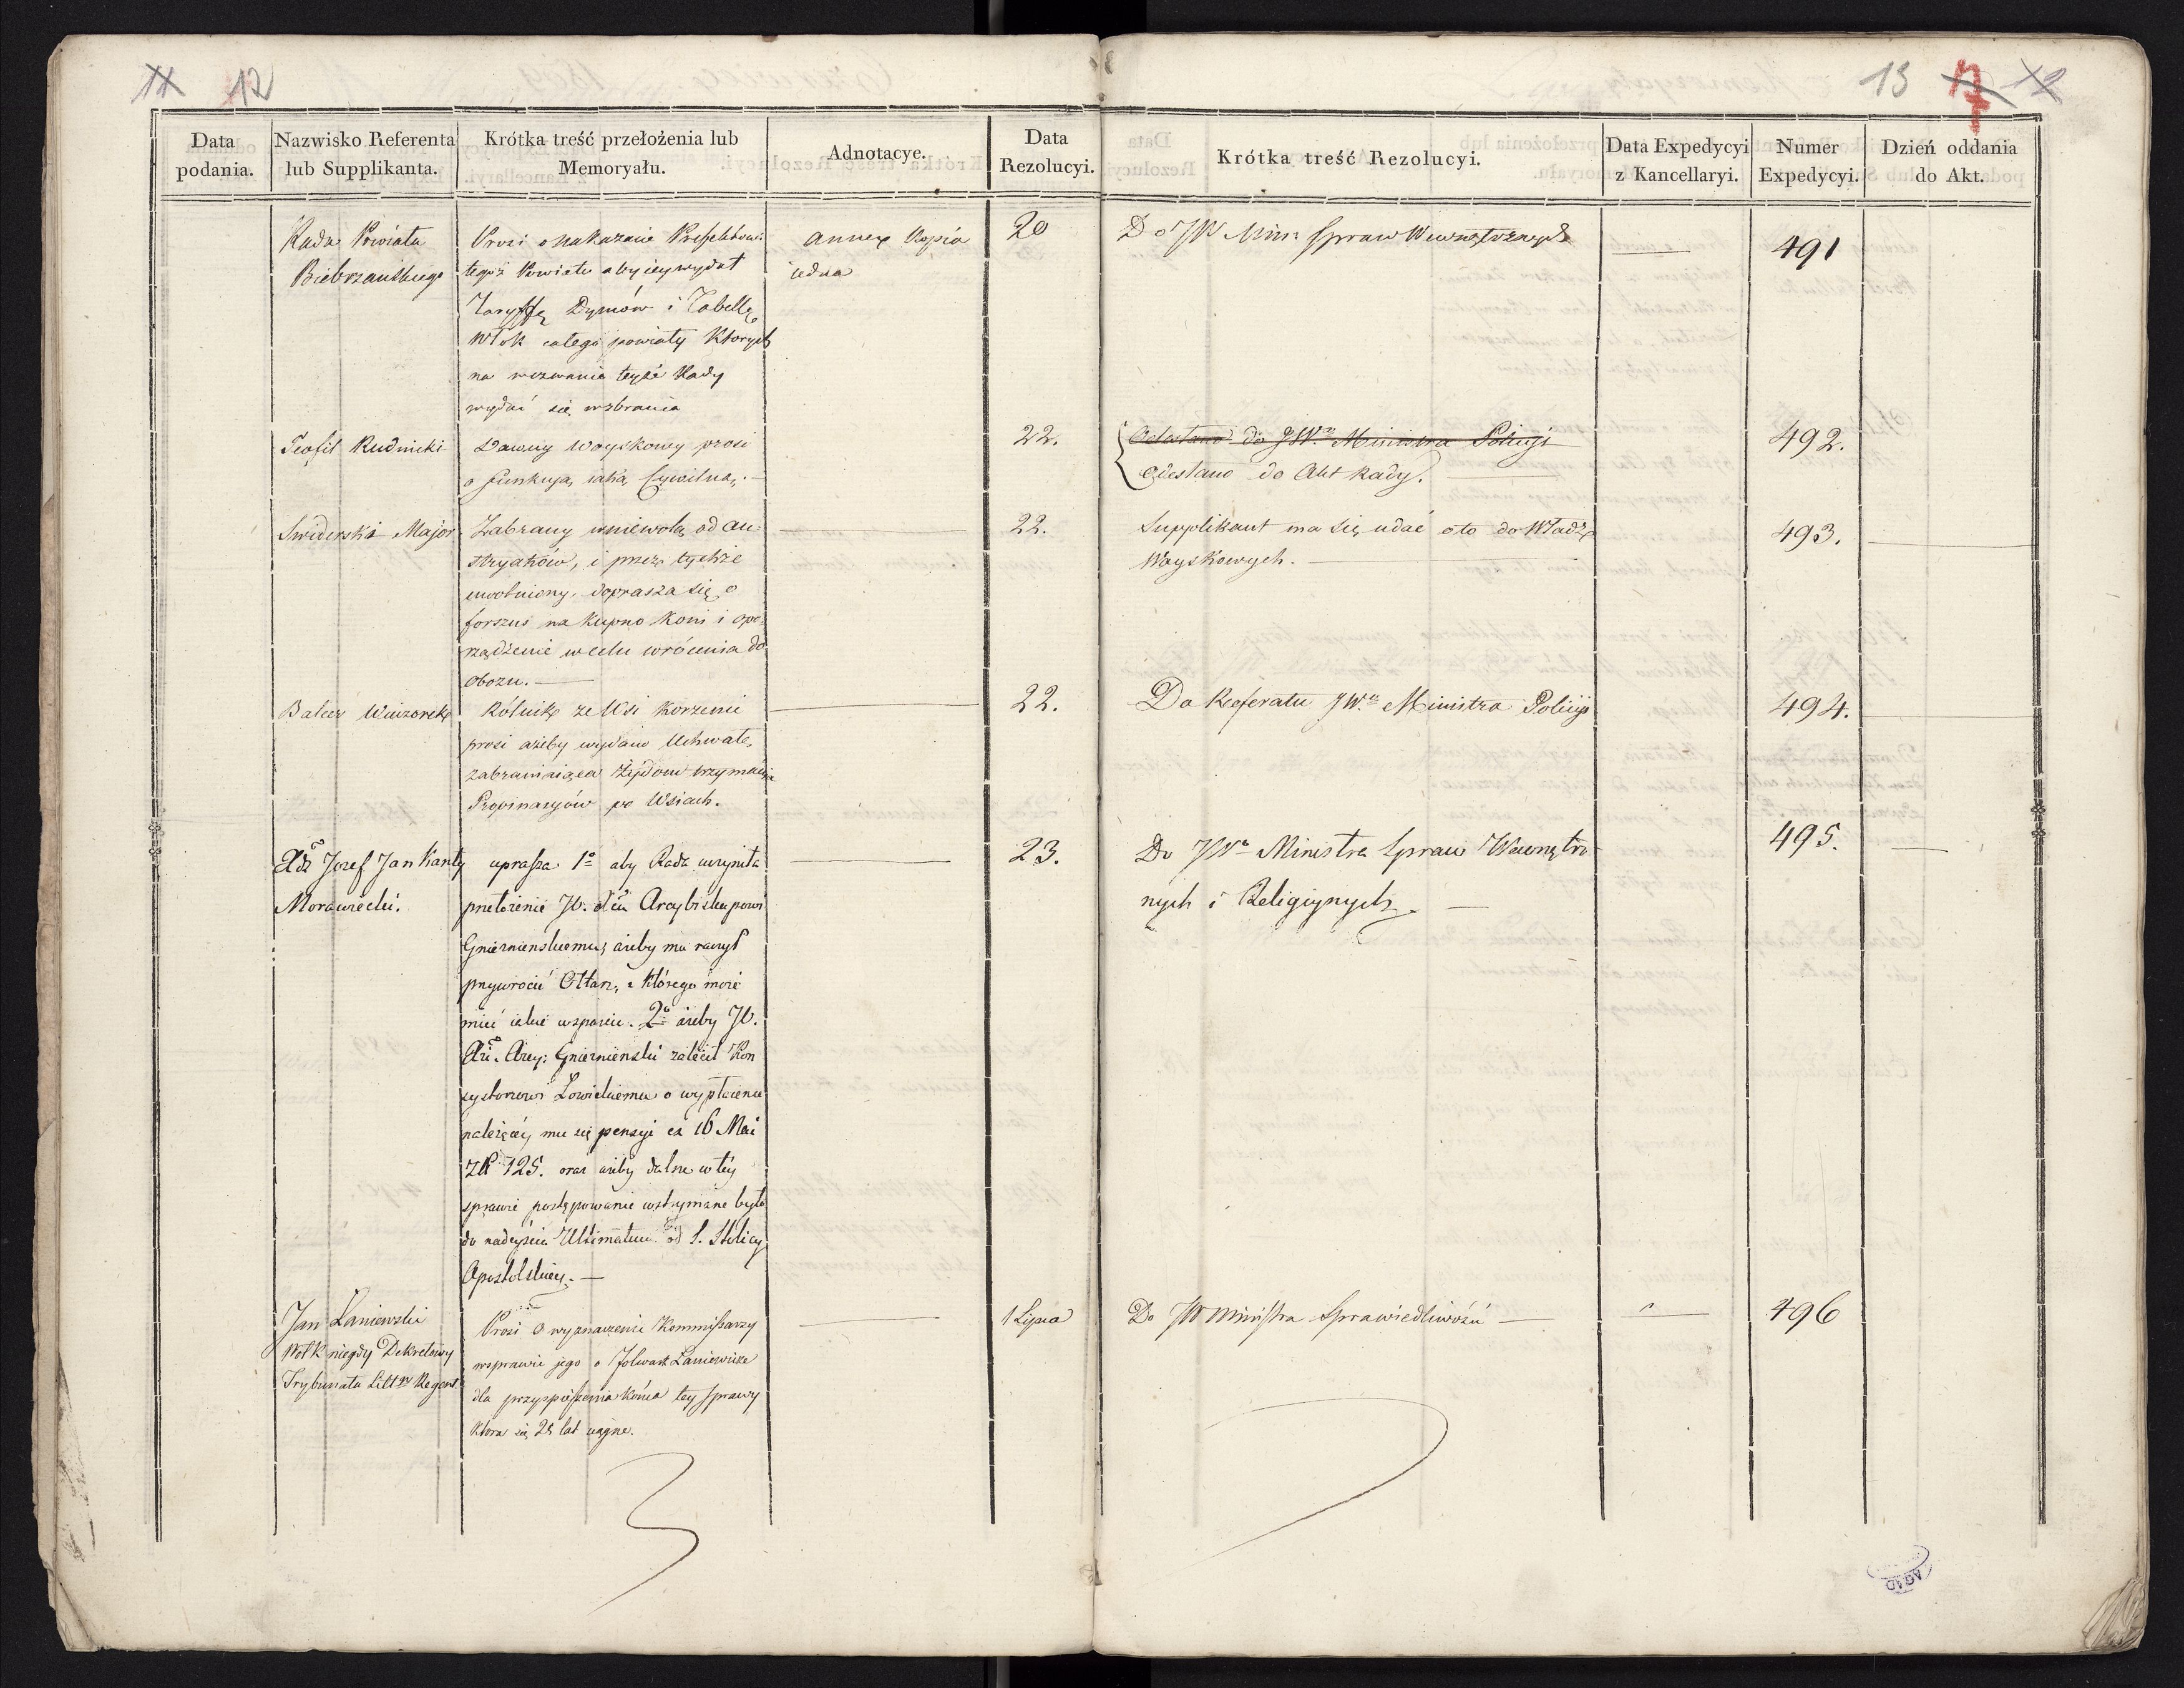 11 12
13 7 12
Data podania.
Nazwisko Referenta lub Supplikanta.
Krótka treść przełożenia lub Memoryału.
Adnotacye.
Data Rezolucyi.
Krótka treść Rezolucyi.
Data Expedycyi z Kancellaryi.
Numer Expedycyi.
Dzień oddania do Akt.
Rada Powiatu
Biebrzańskiego
Prosi o nakazanie Prefektowi
tegoż Powiatu aby iey wydał
Taryffę Dymów i Tabellę
Włok całego powiatu Których
na wezwanie teyże Rady
wydać się wzbrania
annex Kopia
iedna
20
Do JW Min: Spraw Wewnętrznych
—
491
Teofil Rudnicki
Dawny Woyskowy prosi
o funkcyą iaką Cywilną. —
22.
Odesłano do JWº Ministra Policyi
Odesłano do Akt Rady. —
492.
Swiderski Major
Zabrany wniewolą od Au-
stryaków, i przez tychże
uwolniony, doprasza się o
forszus na kupno Koni i opo-
rządzenie w celu wrócenia do
obozu. —
—
22.
Supplikant ma się udać oto do Władz
Woyskowych. —
493.
—
Balcer Wieczorek
Rólnik ze Wsi Korzenie
prosi ażeby wydano Uchwałę,
zabraniaiącą Żydom trzymania
Propinacyów po Wsiach.
—
22.
Do Referatu JWº Ministra Policyi
494.
Xdz Jozef Jan Kanty
Morawiecki.
uprasza 1º aby Rada uczyniła
przełożenie JW. Xciu Arcybiskupowi
Gnieznienskiemu, ażeby mu raczył
przywrócić Ołtarz, z którego może
mieć iakie wsparcie. 2º ażeby JW.
Xże. Arcy: Gnieznienski zalecił Kon
systorzowi Łowickiemu o wypłacenie
należącey mu się pensyi ex 16 Mai
Zł 125. oraz ażeby dalsze w téy
sprawie postępowanie wstrzymane było
do nadeyścia Ultimatum od S. Stolicy
Apostolskiey. —
—
23.
Do JWº Ministra Spraw Wewnętrz-
nych i Religiynych. —
495.
—
Jan Łaniewski
Wołk niegdy Dekretowy
Trybunału Litt: Regent
Prosi o wyznaczenie Kommissarzy
wsprawie jego o Folwark Łaniewicze
dla przyspieszenia Końca tey sprawy
Która się 25 lat ciągnie.
—
1 Lipca
Do JW Ministra Sprawiedliwości —
—
496
AGAD